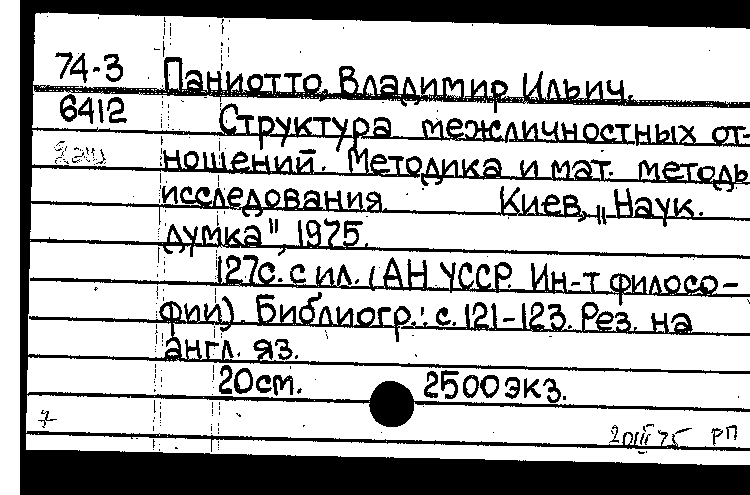 74-3 Паниотто, Владимир Ильич.
6412 Структура межличностных от-
2 экз ношений. Методика и мат. методы
исследования. Киев, „Наук.
думка", 1975.
127с. с ил. (АН УССР. Ин-т филосо-
фии). Библиогр.: с. 121-123. Рез. на
англ. яз.
20см. 2500экз.
РП